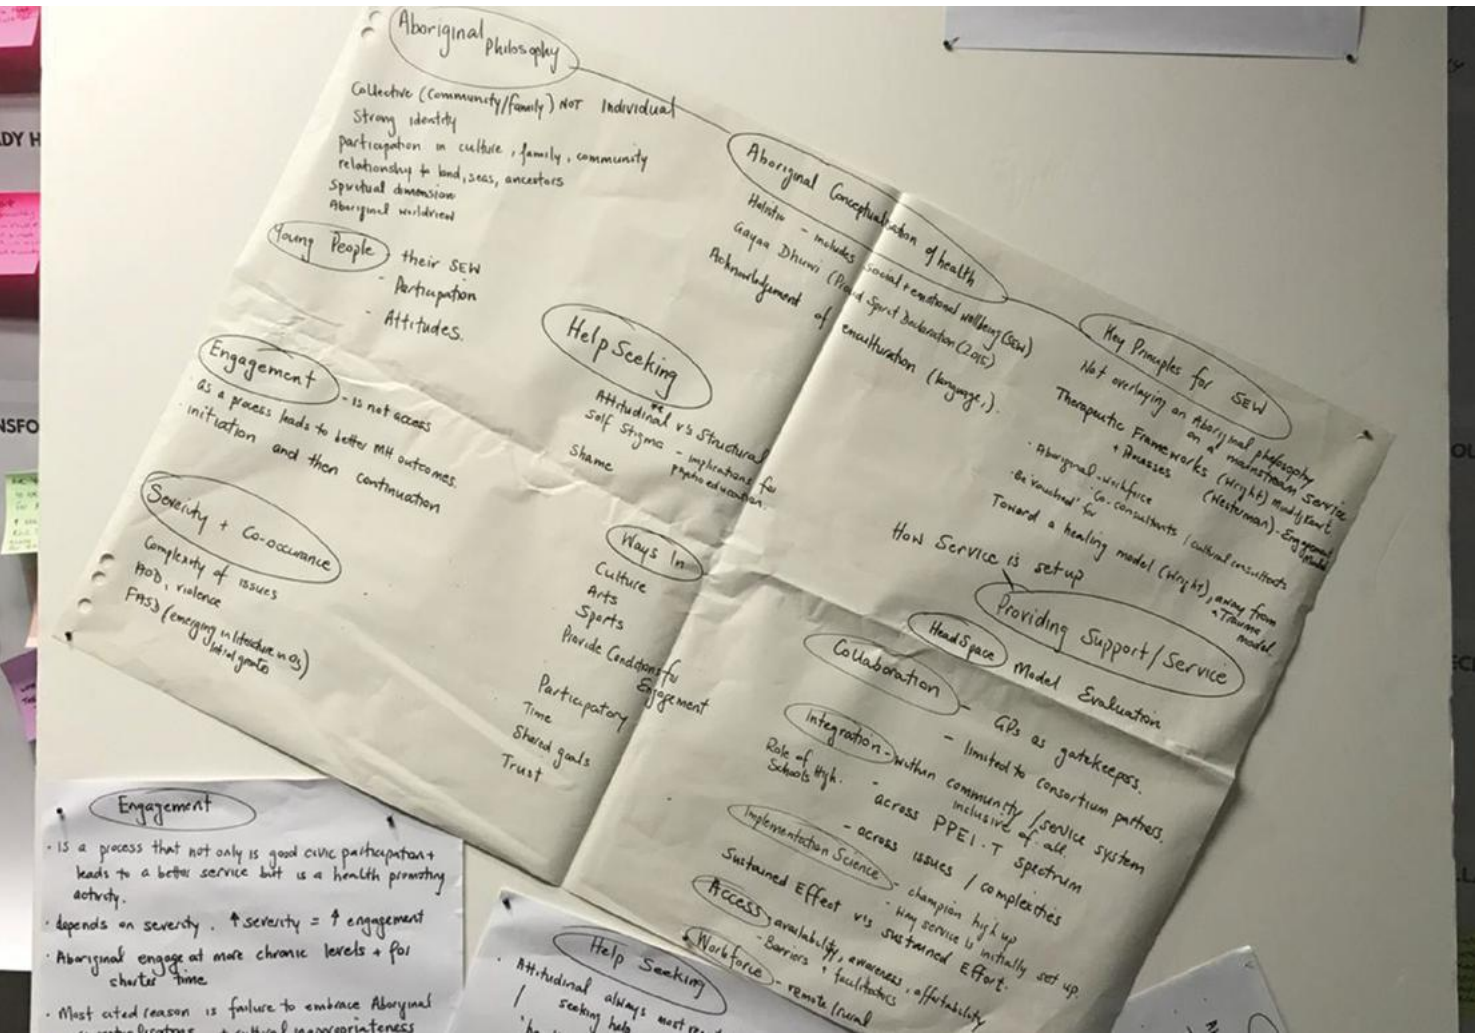 Aboriginal
Philosophy
Collective (community/family) NOT Individual
Strong identity
participation in culture, family, community
relationship to land, seas, ancestors
Spiritual dimension
Aboriginal worldview
Young People their SEW
- Participation
- Attitudes.
Engagement - is not access
· as a process leads to better MH outcomes.
· initiation and then continuation
Severity + Co-occurance
Complexity of issues
AOD, violence
FASD (emerging in literature in
Help Seeking
Attitudinal vs Structural
Self Stigma - implications for
psychoeducation.
Shame
Ways In
Culture
Arts
Sports
Provide Conditions for
Engagement
Participatory
Time
Shared goals
Trust
Aboriginal Conceptualisation of health
Holistic - includes social + emotional wellbeing (SEW)
Gayaa Dhuwi (Proud Spirit Declaration (2015)
Acknowledgement of enculturation (language,).
Key Principles for SEW
Not overlaying an Aboriginal philosophy
on a mainstream service
Therapeutic Frameworks (Wright)
+ Processes (Westerman) - Engagement
Model
· Aboriginal workforce
· Co-consultants / cultural consultants
· Be 'vouched' for
Toward a healing model (Wright), away from
a Trauma
model.
How Service is set up
Providing Support/Service
HeadSpace Model Evaluation
Collaboration - GPs as gatekeepers.
- limited to consortium partners.
Integration - within community / service system
inclusive of all.
Role of High
Schools
- across PPEI-T spectrum
- across issues / complexities
Implementation Science - champion high up
- Way service is initially set up.
Sustained Effect v's sustained Effort.
Access, availability, awareness, affordability
- Barriers + facilitators
Workforce - remote/rural
Engagement
· is a process that not only is good civic participation +
leads to a better service but is a health promoting
activity.
· depends on severity. ↑ severity = ↑ engagement
· Aboriginal engage at more chronic levels + for
shorter time
· Most cited reason is failure to embrace Aboriginal
+ cultural inappropriateness
Help Seeking
· Attitudinal always most
seeking help
DY H
NSFO